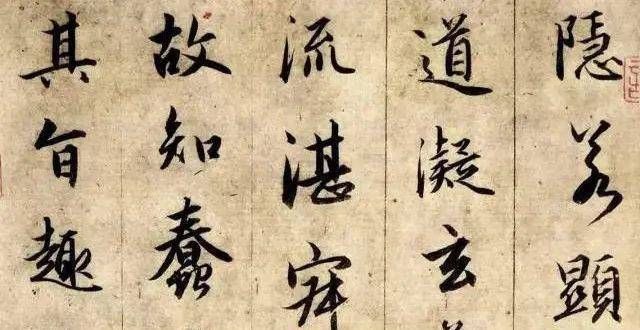 隱若顯
道凝玄
流湛寂
故知蠢
其旨趣